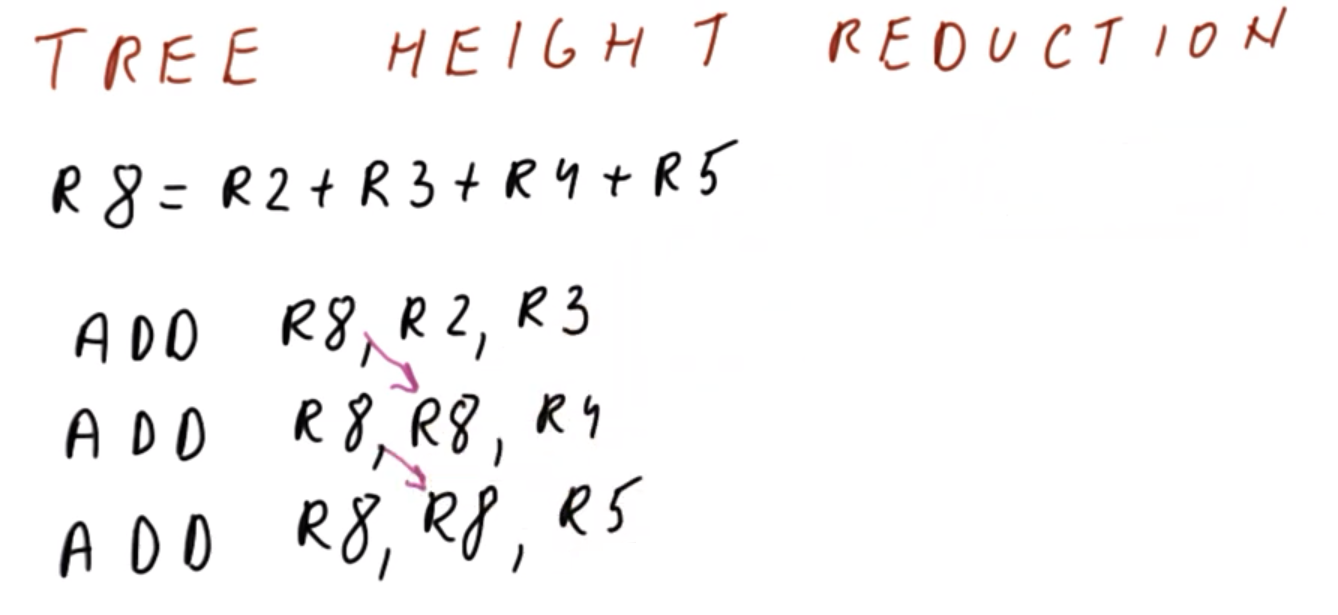 TREE HEIGHT REDUCTION
R8 = R2 + R3 + R4 + R5
ADD R8, R2, R3
ADD R8, R8, R4
ADD R8, R8, R5